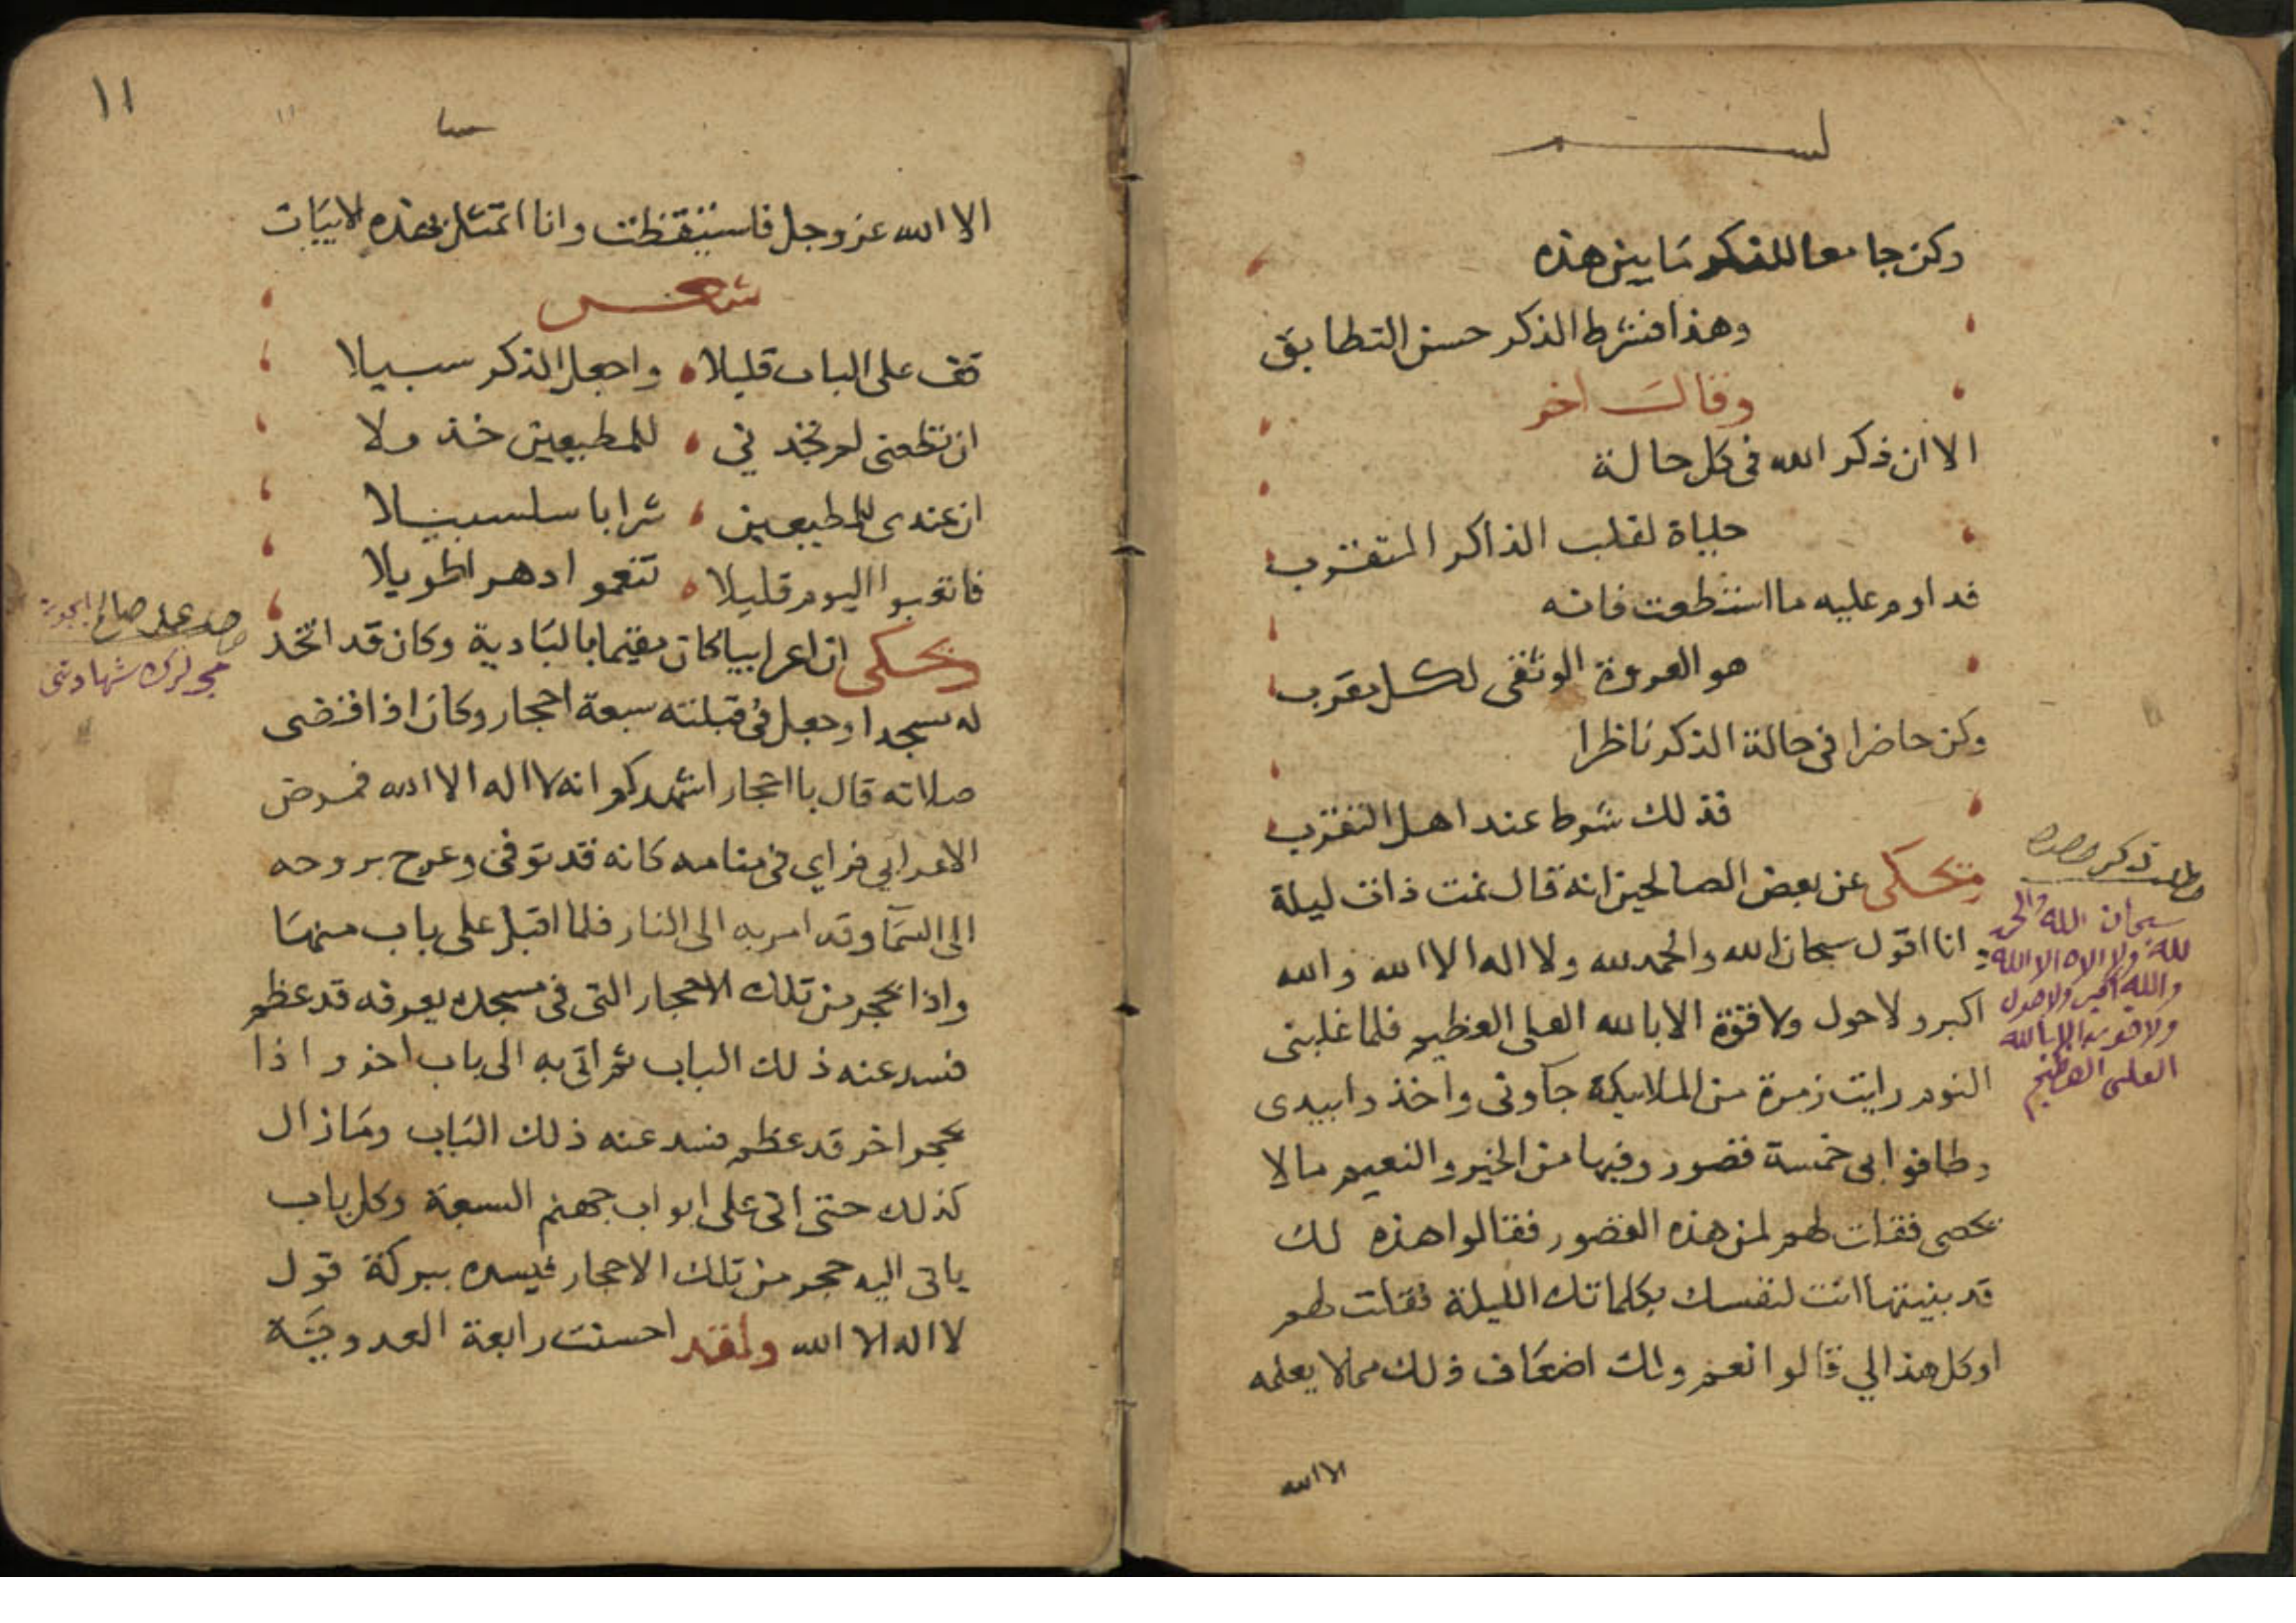 لبسم
وكن جامعا للذكر ما بين هذه
وهذا فشرط الذكر حسن التطابق
وقال اخر
الا ان ذكر الله في كل حالة
حياة لقلب الذاكر المتقرب
فداوم عليه ما استطعت فانه
هو العروة الوثقى لكل مقرب
وكن حاضرا في حالة الذكر ناظرا
فذلك شرط عند اهل التقرب
وحكى عن بعض الصالحين انه قال نمت ذات ليلة
انا اقول سبحان الله والحمد لله ولا اله الا الله والله
اكبر ولا حول ولا قوة الا بالله العلى العظيم فلما غلبنى
النوم رايت زمرة من الملايكة جاونى واخذوا بيدى
وطافوا بى خمسة قصور وفيها من الخير والنعيم ما لا
يحصى فقلت لهم لمن هذه القصور فقالوا هذه لك
قد بنيتها انت لنفسك بكلماتك الليلة فقلت لهم
اوكل هذا لي قالوا نعم ولك اضعاف ذلك مما لا يعلمه
الا الله
ذكر
سبحان الله والحمد
لله ولا اله الا الله
والله اكبر ولا حول
ولا قوة الا بالله
العلى العظيم
١١
الا الله عز وجل فاستيقظت وانا اتمثل بهذه لابيات
شعر
قف على الباب قليلا واجعل الذكر سبيلا
ان تطعنى لم تجدني للمطيعين خذولا
ان عندى للمطيعين شرابا سلسبيلا
فاتعبوا اليوم قليلا تنعموا دهرا طويلا
وحكى ان اعرابيا كان مقيما بالبادية وكان قد اتخذ
له مسجدا وجعل في قبلته سبعة احجار وكان اذا قضى
صلاته قال يا احجار اشهدكم انه لا اله الا الله فمرض
الاعرابي فراي في منامه كانه قد توفى وعرج بروحه
الى السمآ وقد امر به الى النار فلما اقبل على باب منها
واذا بحجر من تلك الاحجار التى فى مسجده يعرفه قد عظم
فسد عنه ذلك الباب ثم اتى به الى باب اخر واذا
بحجر اخر قد عظم فسد عنه ذلك الباب وما زال
كذلك حتى اتى على ابواب جهنم السبعة وكل باب
ياتى اليه حجر من تلك الاحجار فيسده ببركة قول
لا اله الا الله ولقد احسنت رابعة العدوية
صالح
شهادتى